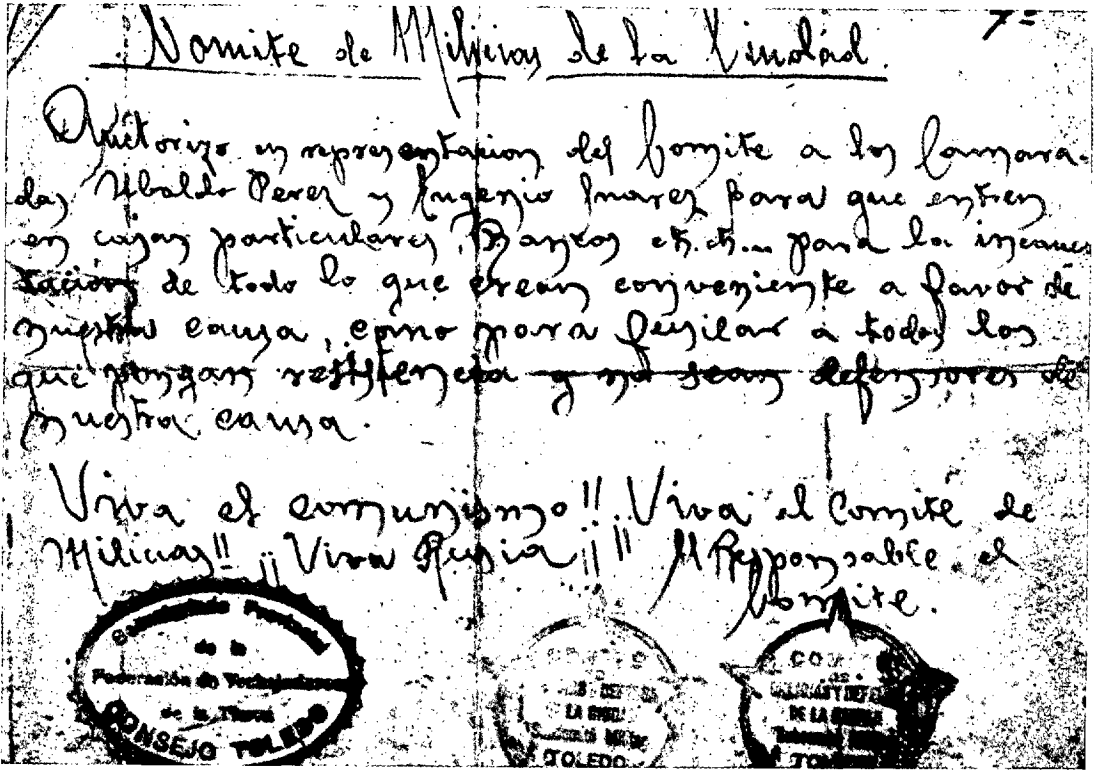 7º
Comite de Milicias de la Ciudad.
Autorizo en representacion del Comite a los Camara-
das Ubaldo Perez y Eugenio Juarez para que entren
en casas particulares, Bancos etc.etc... para la incaus
tacion de todo lo que crean conveniente a favor de
nuestra causa, como para fusilar a todos los
que pongan resistencia y no sean defensores de
nuestra causa.
Viva el comunismo!! Viva el Comité de
Milicias!! ¡¡Viva Rusia!! Responsable el
Comite.
Provincial
de la
Federación de Trabajadores
de la Tierra
CONSEJO TOLEDO
DE LA
TOLEDO
COM
MILICIAS Y DEFE
DE LA
TOLEDO